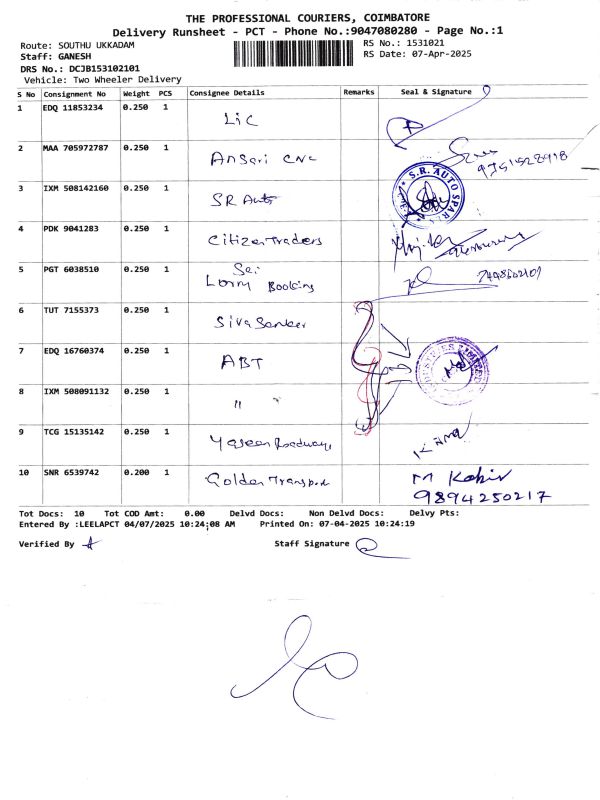 THE PROFESSIONAL COURIERS, COIMBATORE
Delivery Runsheet - PCT - Phone No.:9047080280 - Page No.:1
Route: SOUTHU UKKADAM
RS No.: 1531021
Staff: GANESH
RS Date: 07-Apr-2025
DRS No.: DCJB153102101
Vehicle: Two Wheeler Delivery
S No Consignment No Weight PCS Consignee Details Remarks Seal & Signature
1 EDQ 11853234 0.250 1 Lic
2 MAA 705972787 0.250 1 Ansari CNC
3 IXM 508142160 0.250 1 SR Auto S.R. AUTO SPARES
4 PDK 9041283 0.250 1 Citizen Traders
5 PGT 6038510 0.250 1 Sai
Lorry Booking
6 TUT 7155373 0.250 1 Siva Sankar
7 EDQ 16760374 0.250 1 ABT
8 IXM 508091132 0.250 1 " "
9 TCG 15135142 0.250 1 Yaseen Roadways
10 SNR 6539742 0.200 1 Golden Transport M Kabir
9894250217
Tot Docs: 10 Tot COD Amt: 0.00 Delvd Docs: Non Delvd Docs: Delvy Pts:
Entered By :LEELAPCT 04/07/2025 10:24:08 AM Printed On: 07-04-2025 10:24:19
Verified By
Staff Signature